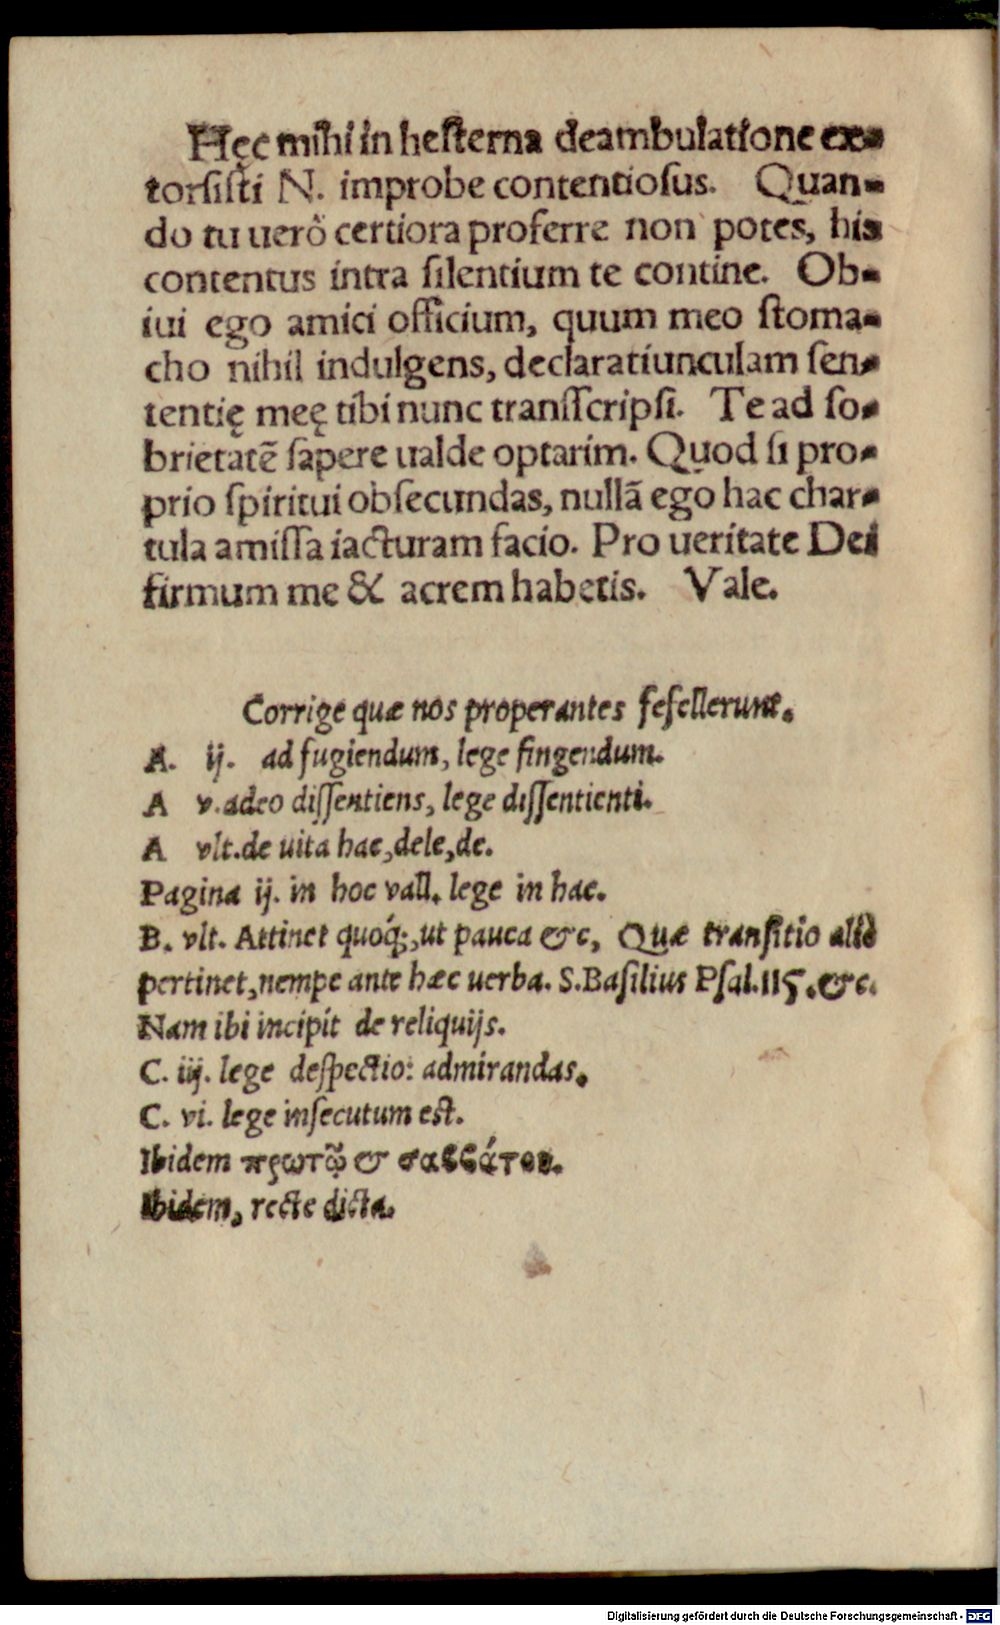 Hęc mihi in hesterna deambulatione ex-
torsisti N. improbe contentiosus. Quan-
do tu uerò certiora proferre non potes, his
contentus intra silentium te contine. Ob-
iui ego amici officium, quum meo stoma-
cho nihil indulgens, declaratiunculam sen-
tentię meę tibi nunc transscripsi. Te ad so-
brietatē sapere ualde optarim. Quod si pro-
prio spiritui obsecundas, nullā ego hac char-
tula amissa iacturam facio. Pro ueritate Dei
firmum me & acrem habetis. Vale.
Corrige quæ nos properantes fefellerunt.
A. ij. ad fugiendum, lege fingendum.
A v. adeo dissentiens, lege dissentienti.
A vlt. de uita hac, dele, de.
Pagina ij. in hoc vall. lege in hac.
B. vlt. Attinet quoq́;, ut pauca &c, Quæ transitio aliò
pertinet, nempe ante hæc uerba. S. Basilius Psal. 115. &c.
Nam ibi incipit de reliquijs.
C. iij. lege despectio: admirandas.
C. vi. lege insecutum est.
Ibidem πρωτῳ̃ & σαββάτου.
Ibidem, recte dicta.
Digitalisierung gefördert durch die Deutsche Forschungsgemeinschaft - DFG